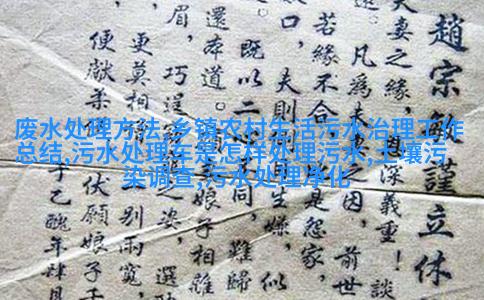 废水处理方法,乡镇农村生活污水治理工作
总结,污水处理车是怎样处理污水,土壤污
染调查,污水处理净化
趙宗敏謹立休
夫妻之緣，恩深義重！談
凡為夫妻之因，前世
若緣不合，是怨家，
口，夫則生嫌，似
既以二同，難歸
還本道。娘子相離
眉，巧逞之姿，選
更莫相別兩寬，
便獻柔伏願娘子千
于乙醜年肆月